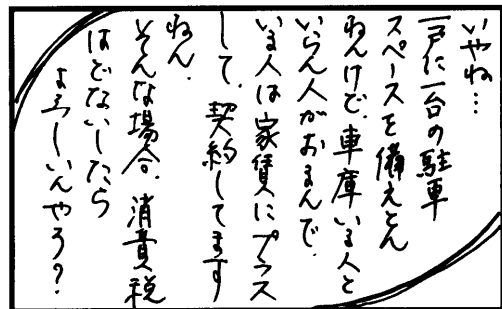 いやね…
一戸に一台の駐車
スペースを備えとん
ねんけど、車庫いる人と
いらん人がおまんで、
いる人は家賃にプラス
して、契約してます
ねん。
そんな場合、消費税
はどないしたら
よろしいんやろ？